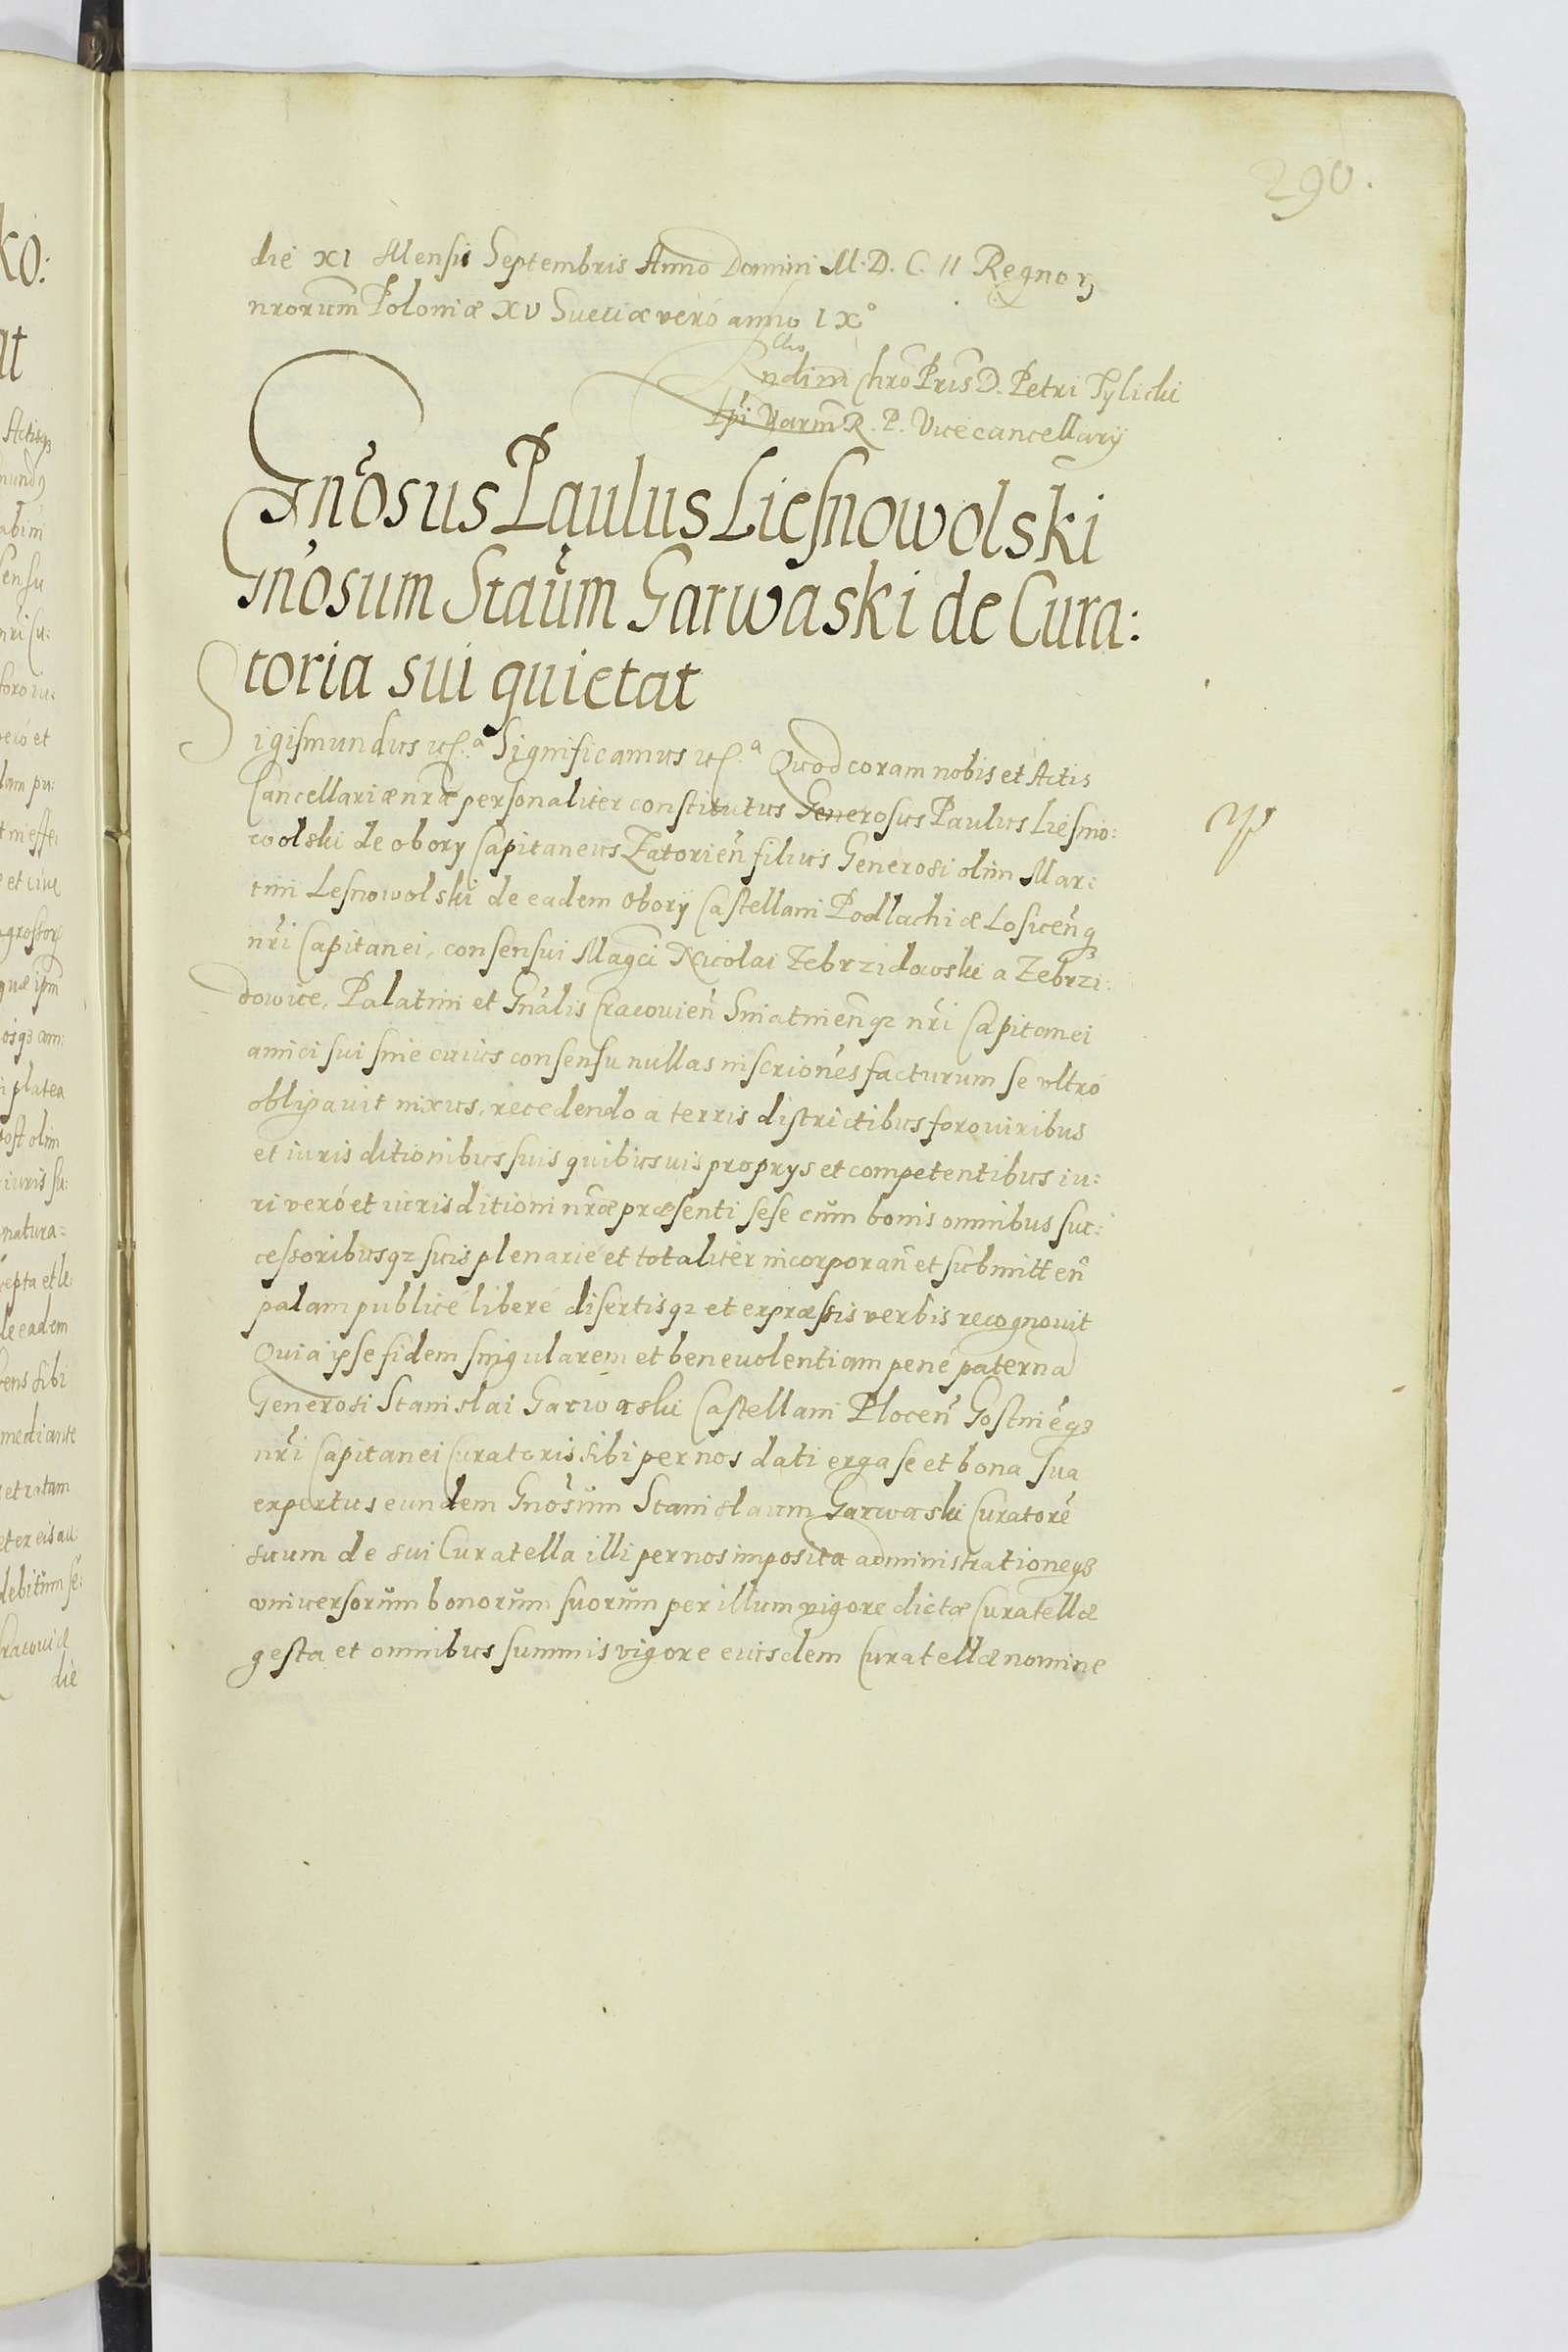 290.
die XI Mensis Septembris Anno Domini M.D.C.II Regnorꝫ
nrorum Poloniæ XV Sueciæ veró anno IX°
Rndi in Chro Pris D. Petri Tylicki
Epi Varm R. P. Vicecancellarij
Gnosus Paulus Liesnowolski
Gnosum Staum Garwaski de Cura:
toria sui quietat
Sigismundus etc.a Significamus etc.a Quod coram nobis et Actis
Cancellariæ nræ personaliter constitutus Generosus Paulus Liesno:
wolski de obory Capitaneus Zatorien filius Generosi olim Mar:
tini Lesnowolski de eadem Obory Castellani Podlachiæ Losicenqꝫ
nri Capitanei, consensui Magci Nicolai Zebrzidowski a Zebrzi:
dowice, Palatini et Gnalis Cracouien Sniatinenqꝫ nri Capitanei
amici sui sine cuius consensu nullas inscriones facturum se vltró
obligauit nixus, recedendo a terris districtibus foro viribus
et iurisditionibus suis quibusuis proprys et competentibus iu:
ri veró et iurisditioni nræ præsenti sese cum bonis omnibus suc:
cessoribusqꝫ suis plenarié et totaliter incorporan et submitten
palam publicé liberé disertisqꝫ et expræssis verbis recognouit
Quia ipse fidem singularem et beneuolentiam pené paterna
Generosi Stanislai Garwaski Castellani Plocen Gostinēqꝫ
nri Capitanei Curatoris sibi per nos dati erga se et bona sua
expertus eundem Gnosum Stanislaum Garwaski Curatore
suum de sui Curatella illi per nos imposita administrationeqꝫ
vniuersorum bonorum suorum per illum vigore dictæ Curatellæ
gesta et omnibus summis vigore eiusdem Curatellæ nomine